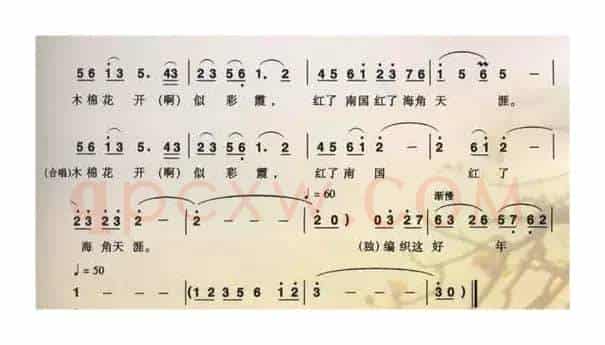 56 i3 5. 43 | 23 56 1. 2 | 45 6i 23 76 | i 5 6 5 — |
木棉花 开(啊)似 彩霞, 红了南国红了海角天 涯。
56 i3 5. 43 | 23 56 1. 2 | 45 6i 2 — | 2 6i 2 — |
(合唱)木棉花 开(啊)似 彩霞, 红了南国 红了
♩= 60 渐慢
23 23 2 — | 2 — — — | 20) 03 27 | 63 26 57 62 |
海角天涯。 (独)编织这好 年
♩= 50
1 — — — | (1 2 3 5 6 i 2 | 3 — — — | 30) ‖
qpcxw.COM